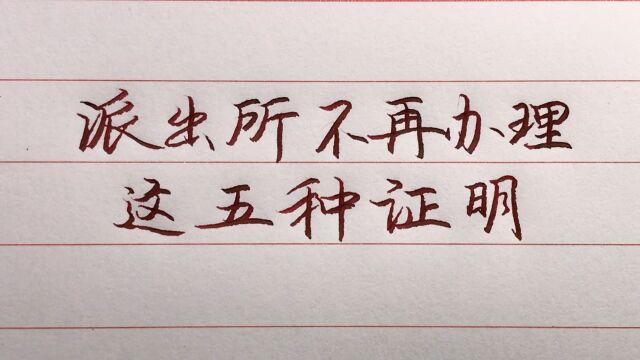 派出所不再办理
这五种证明